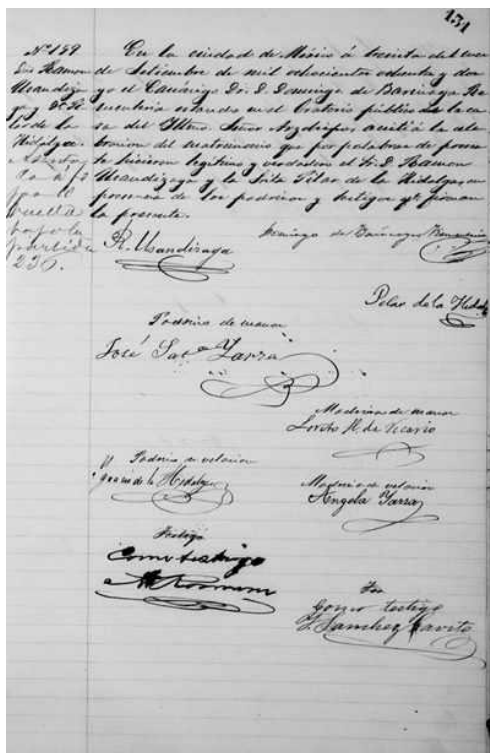 151
Nº 189
Dn Ramon
Usandizaga
y Dª Pi-
lar de la
Hidalga.
Asenta
da á f
por el
vuelta
bajo la
partida
236.
En la ciudad de México á treinta del mes
de Setiembre de mil ochocientos ochenta y dos
yo el Canónigo Dr. D. Domingo de
estando en el Oratorio público de la ca-
sa del Illmo. Señor Arzobispo, asistí á la cele-
bracion del matrimonio que por palabras de presen-
te hicieron legítimo y verdadero el Sr. D. Ramon
Usandizaga y la Srita Pilar de la Hidalga, en
presencia de los padrinos y testigos qe. firman
la presente.
Domingo de
R. Usandizaga
Pilar de la Hidalga
Padrino de manos
José Yarza
Madrina de manos
Loreto H. de Vicario
Padrino de velacion
de la Hidalga
Madrina de velacion
Angela Yarza
Testigo
Como testigo
Como testigo
J. Sanchez